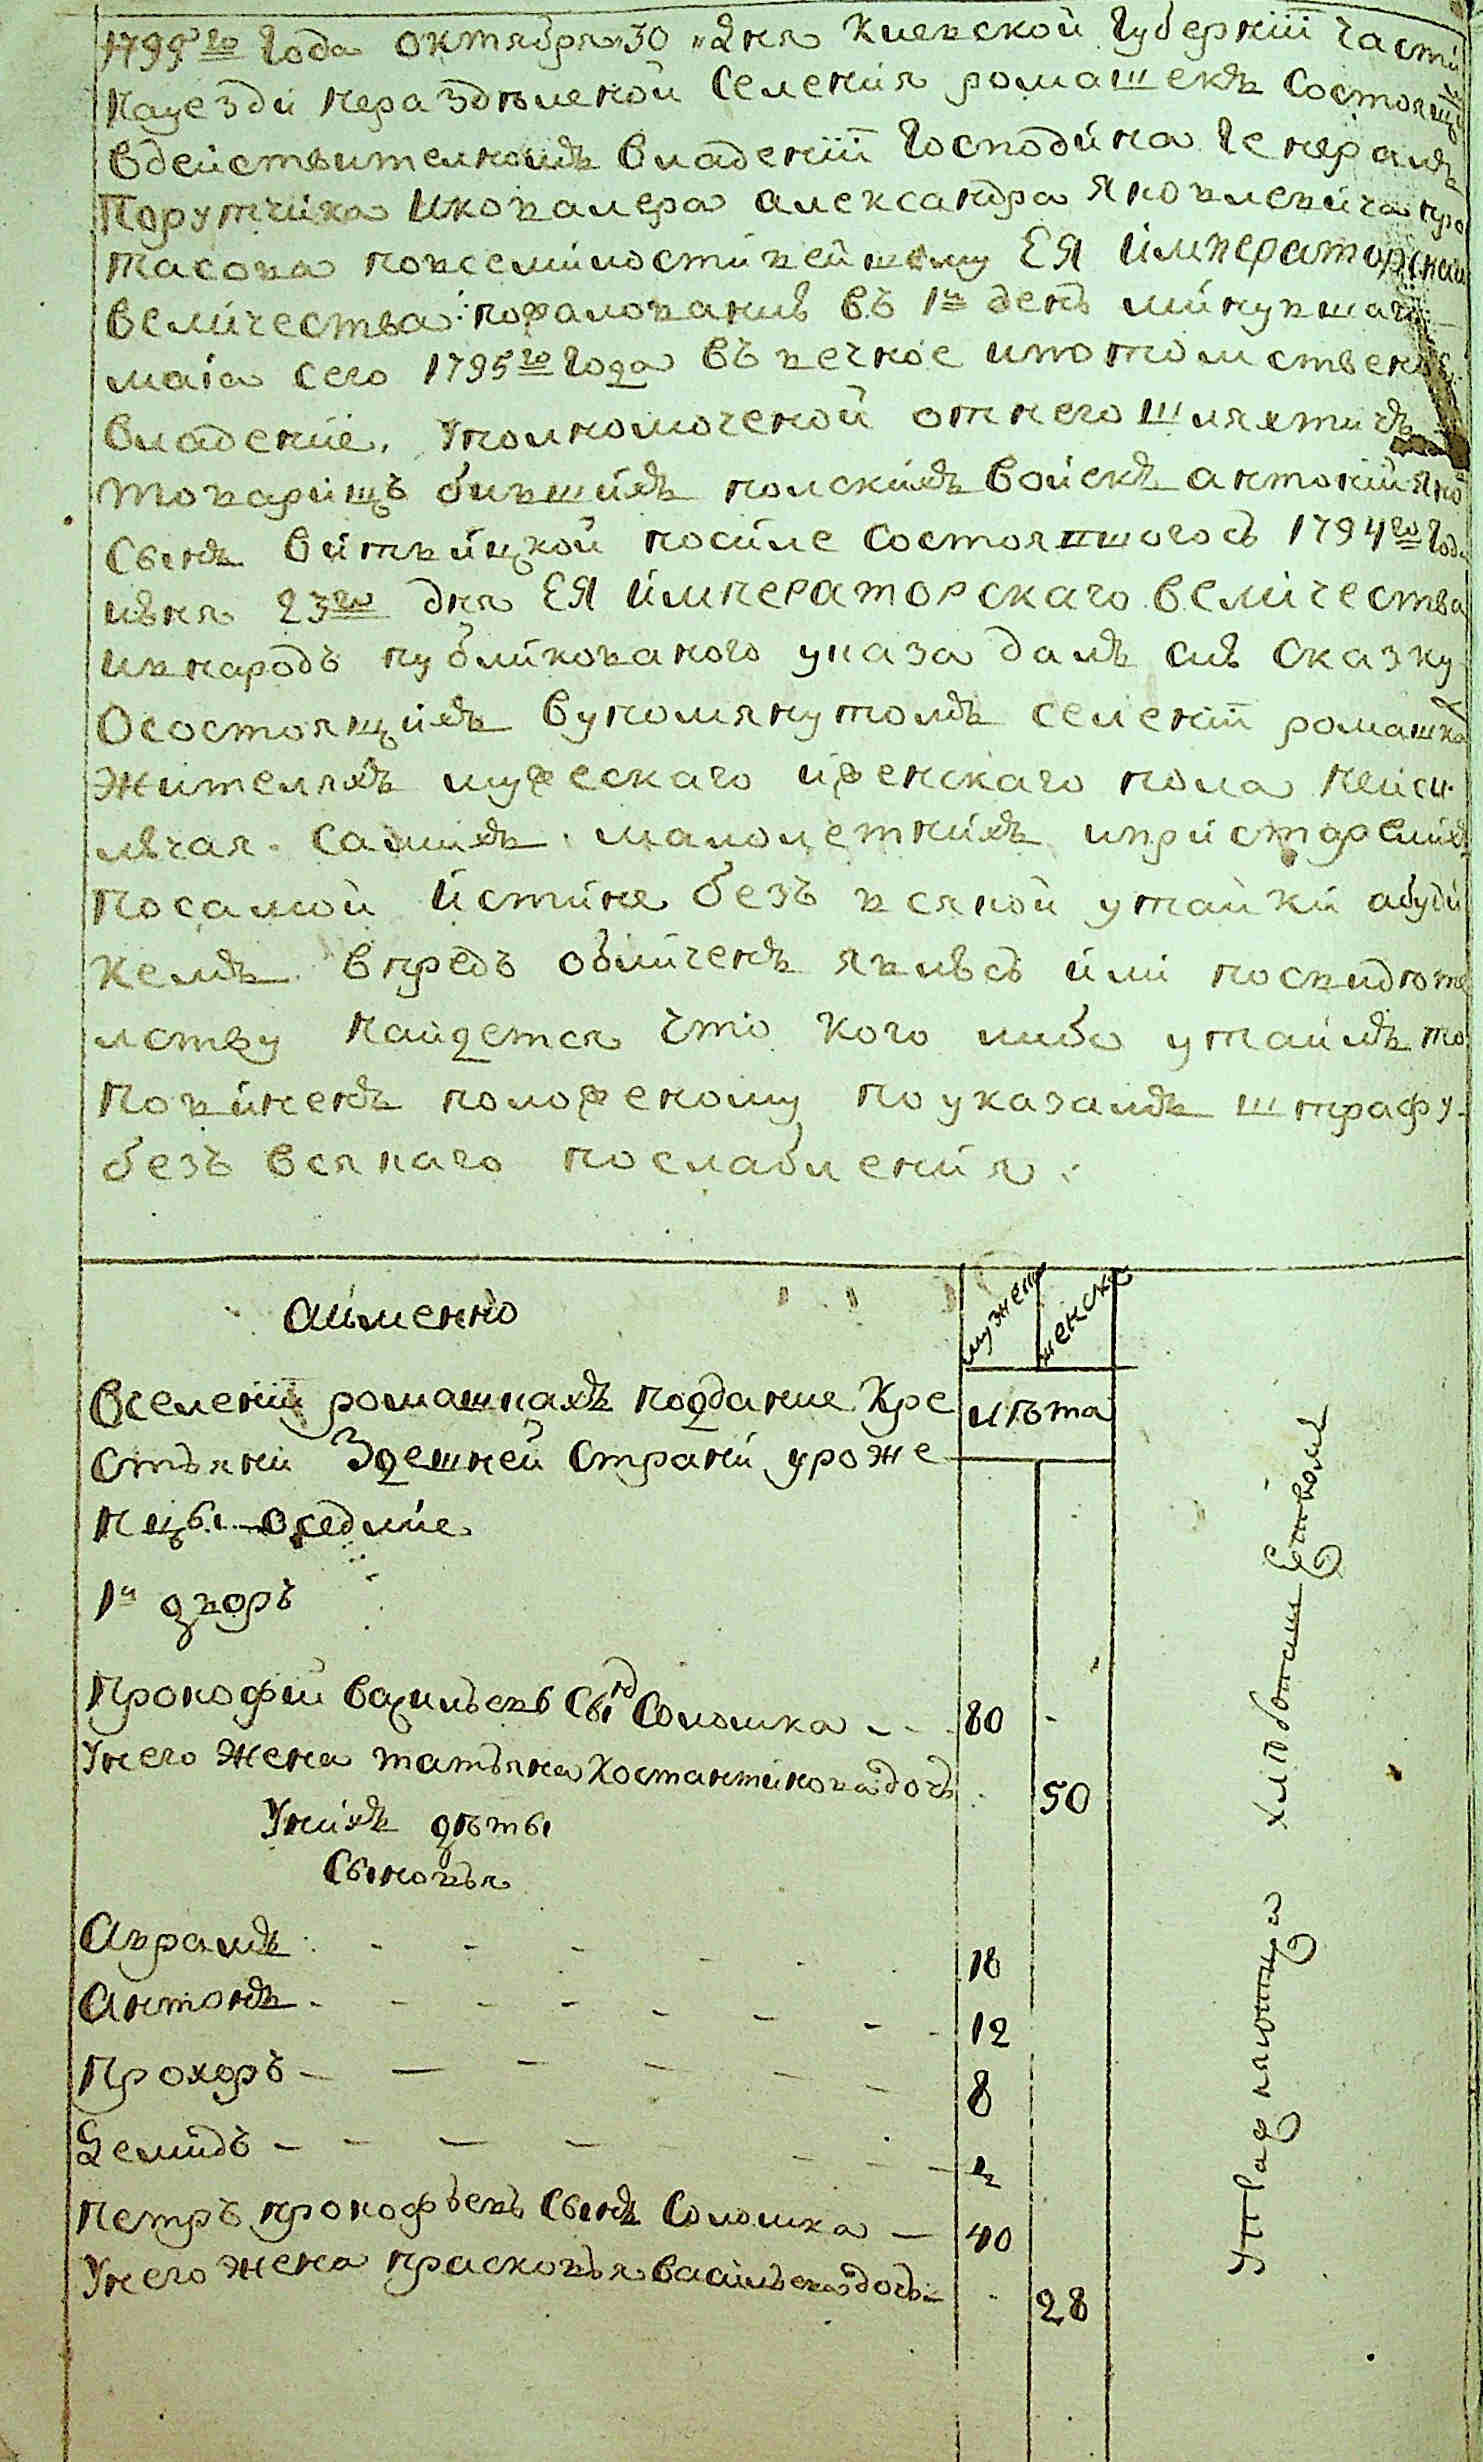 1795го Года октября 30 Дня Киевской Губернїи Части
науезди неразделеной Селения ромашекъ Состоящ
Вдействителномъ владенїи Господина Генералъ
Порутчика Иковалера александра Яковлевича про
тасова повсемилостивейшему ЕЯ Императорскаго
Величества пожалованию въ 1й день минувшаго
маїа сего 1795го Года въ вечное ипотомственое
владенїе, Уполномоченой отнего шляхтичъ
товарищъ бившихъ полскихъ Войскъ антонїй яно
Сынъ Витвицкой посиле Состоявшогось 1794го Года
июня 23го дня ЕЯ Императорскаго Величества
ивнародъ публикованого указа далъ сию Сказку
Осостоящихъ вупомянутомъ селенїи ромашка
жителяхъ мужескаго иженскаго пола неиск
лючая самихъ малолетнихъ ипристарелихъ
посамой истине безъ всякой утайки абуди
кемъ впредъ обличенъ явлюсь или посвидете
лству найдется что кого либо утаилъ то
повиненъ положеному поуказамъ штрафу
безъ всякаго послабления.
аимменно
мужеска
женска
Вселенїи ромашкахъ поддание Кре
лѣта
стъяни Здешней страни уроже
нцы оседлие
1й дворъ
Прокофий Васильевъ Сынъ Соломка 80 -
Унего жена татьяна Костантинова дочь 50
Унихъ дѣты
Сыновья
Аврамъ 18
Антонъ 12
Прохоръ 8
Демидъ 2
Петръ прокофъевъ Сынъ Соломка 40
Унего жена прасковъя Васильева дочь 28
хлѣботаш